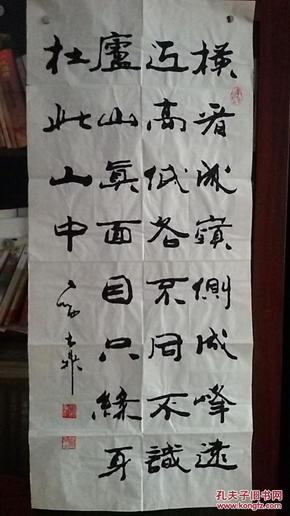 橫看成嶺側成峰遠
近高低各不同不識
廬山眞面目只緣身
在此山中
孔夫子旧书网